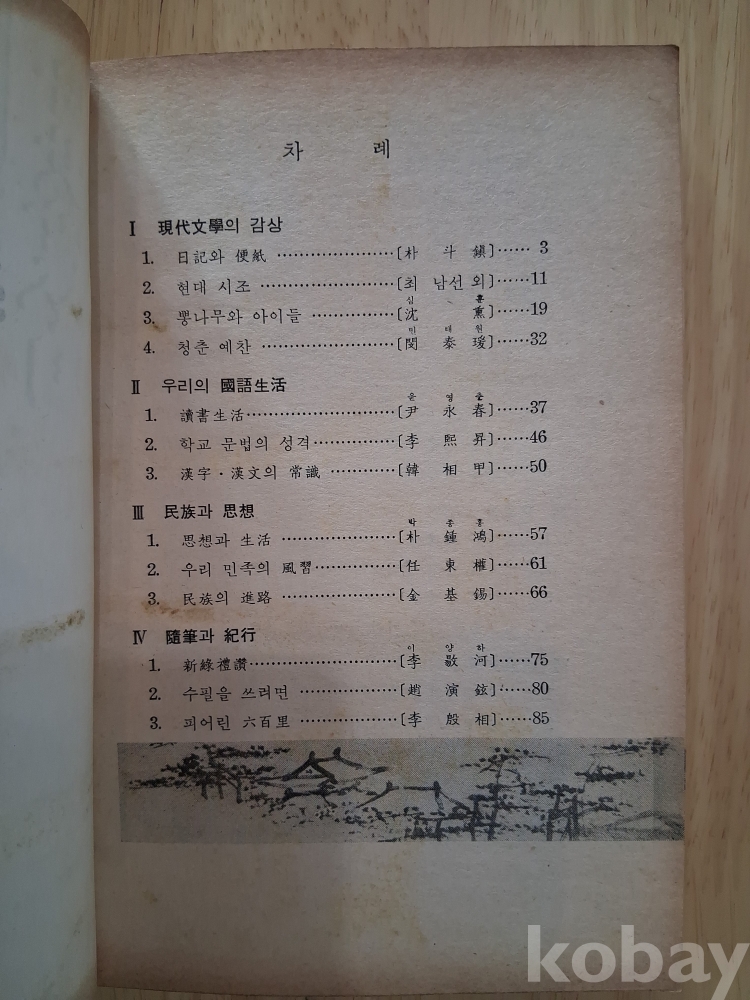 차 례
Ⅰ 現代文學의 감상
1. 日記와 便紙 ·····················〔朴 斗 鎭〕······ 3
2. 현대 시조 ·····················〔최 남선 외〕······11
심 훈
3. 뽕나무와 아이들 ··············〔沈 熏〕······19
민 태 원
4. 청춘 예찬 ·····················〔閔 泰 瑗〕······32
Ⅱ 우리의 國語生活
윤 영 춘
1. 讀書生活··························〔尹 永 春〕······37
2. 학교 문법의 성격··············〔李 熙 昇〕······46
3. 漢字·漢文의 常識 ············〔韓 相 甲〕······50
Ⅲ 民族과 思想
박 종 홍
1. 思想과 生活 ····················〔朴 鍾 鴻〕······57
2. 우리 민족의 風習··············〔任 東 權〕······61
3. 民族의 進路 ····················〔金 基 錫〕······66
Ⅳ 隨筆과 紀行
이 양 하
1. 新綠禮讚··························〔李 敭 河〕······75
2. 수필을 쓰려면 ·················〔趙 演 鉉〕······80
3. 피어린 六百里 ·················〔李 殷 相〕······85
kobay